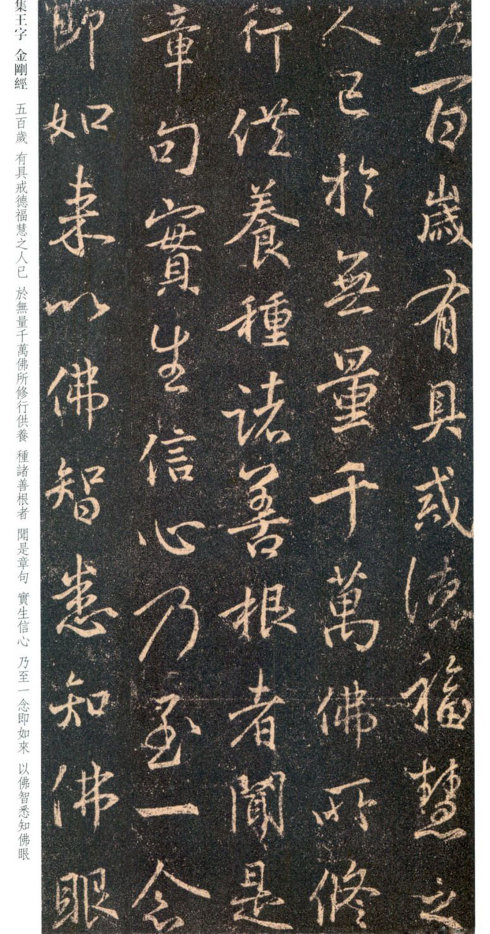 五百歲有具戒德福慧之
人已於無量千萬佛所修
行供養種諸善根者聞是
章句實生信心乃至一念
即如来以佛智悉知佛眼
集王字 金剛經 五百歲 有具戒德福慧之人已 於無量千萬佛所修行供養 種諸善根者 聞是章句 實生信心 乃至一念即如來 以佛智悉知佛眼